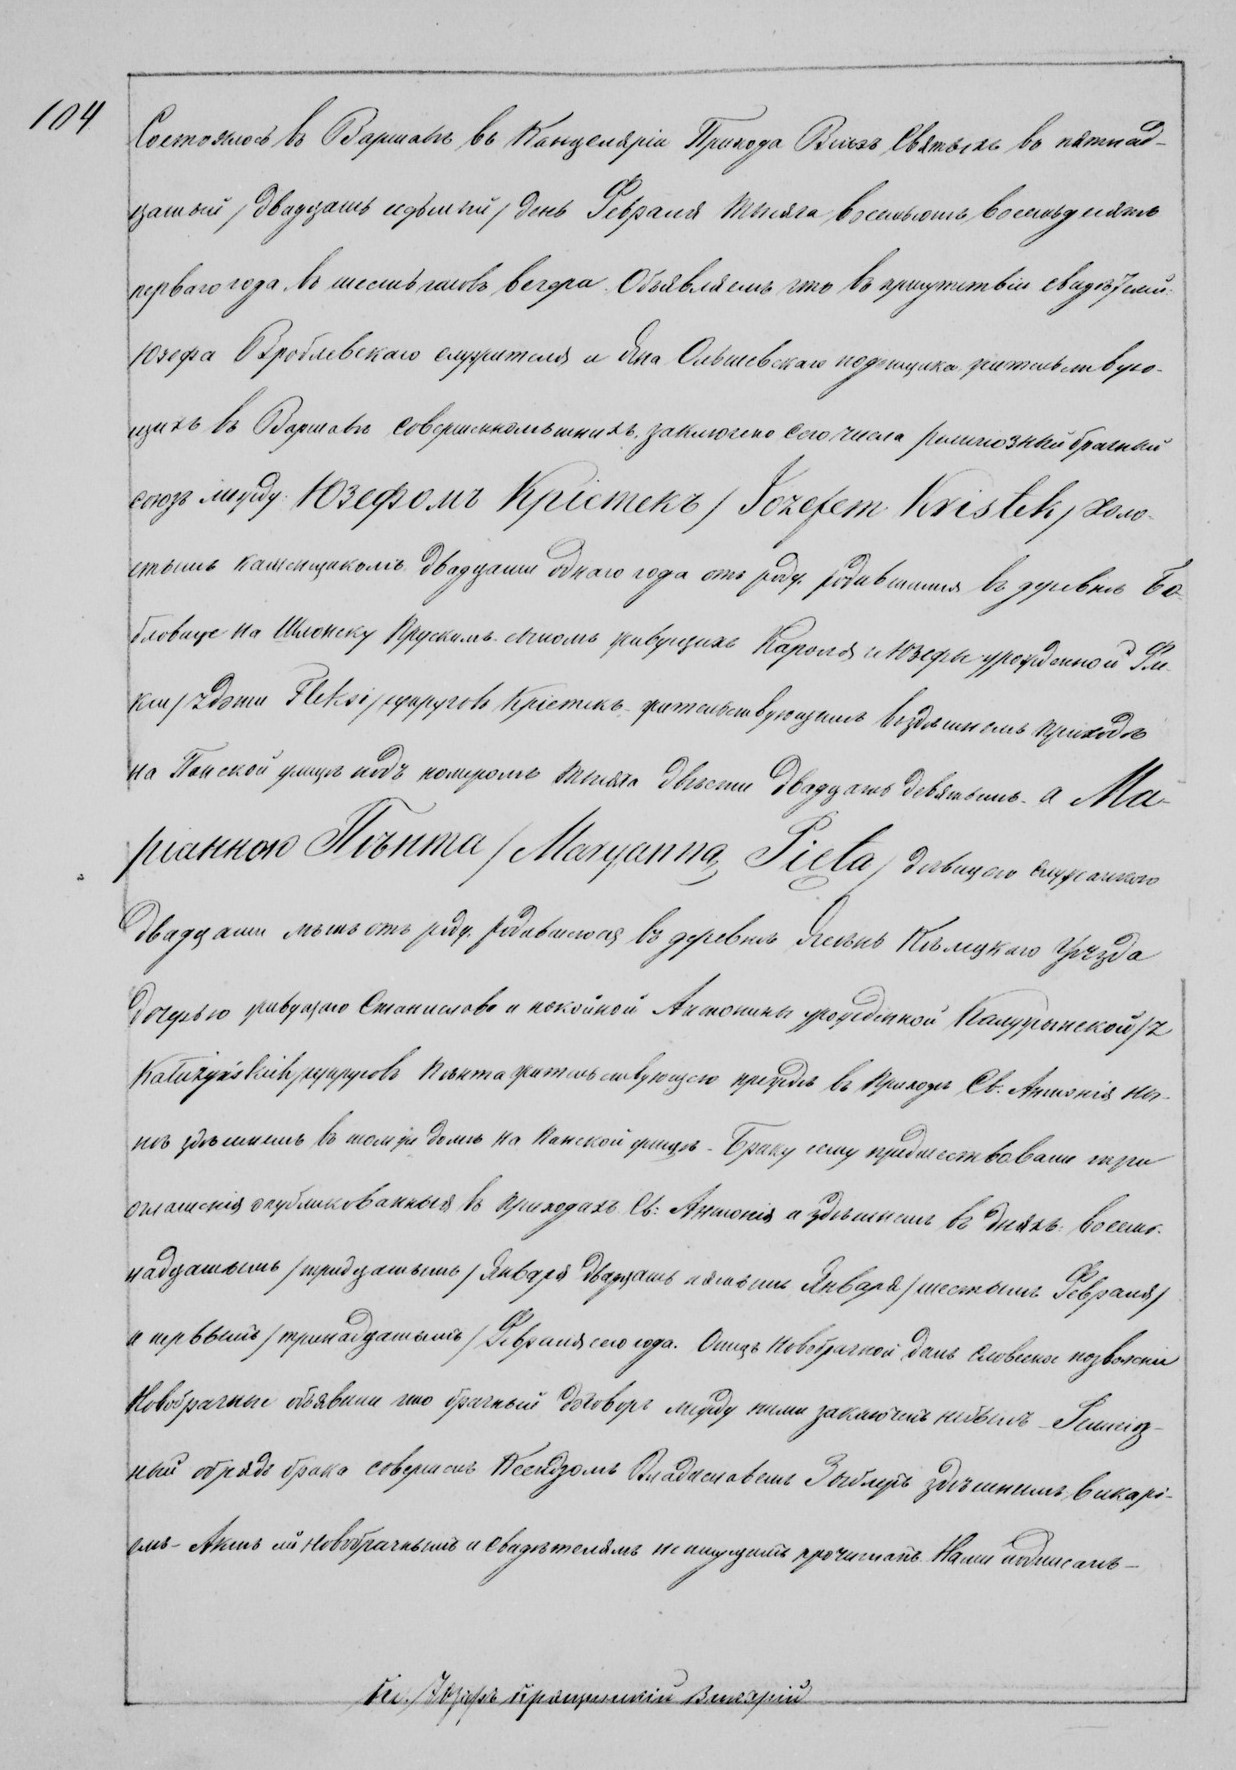 104
Состоялось въ Варшавѣ въ Канцеляріи Прихода Всѣхъ Святыхъ въ пятнад-
цатый / двадцать седьмый / день Февраля тысяча восемьсотъ восемьдесятъ
перваго года, въ шесть часовъ вечера. Объявляемъ что въ присутствіи свидѣтелей
Юзефа Вроблевскаго служителя и Яна Ольшевскаго поденщика жительствую-
щихъ въ Варшавѣ совершеннолѣтнихъ, заключено сего числа религіозный брачный
союзъ между: Юзефомъ Крістекъ / Jozefem Kristek / холо-
стымъ каменщикомъ двадцати одного года отъ роду, родившимся въ деревнѣ Бо-
бловице на Шлонску Прускимъ сыномъ живущихъ Кароля и Юзефы урожденной Фле-
кси / z domu Fleksi / супруговъ Крістекъ жительствующимъ въ здѣшнемъ приходѣ
на Панской улицѣ подъ номеромъ тысяча двѣсти двадцать девятымъ - а Ма-
ріанною Пѣнта / Maryanną Pięta / дѣвицею служанкою
двадцати лѣтъ отъ роду, родившеюся въ деревнѣ Кѣлецкаго Уѣзда
дочерью живущаго Станислава и покойной Антонины урожденной Калужинской / z
Kałużyńskich / супруговъ Пѣнта жительствующею прежде въ приходѣ Св. Антонія ны-
нѣ здѣшнемъ въ томъ же домѣ на Панской улицѣ - Браку сему предшествовали три
оглашенія опубликованныя въ приходахъ Св: Антонія и здѣшнемъ въ дняхъ: восем-
надцатымъ / тридцатымъ / Января двадцать пятымъ Января / шестымъ Февраля /
и первымъ / тринадцатымъ / Февраля сего года. Отецъ новобрачной далъ словесное позволеніе
Новобрачные объявили что брачный договоръ между ними заключенъ небылъ - Религіоз-
ный обрядъ брака совершенъ Ксендзомъ Владиславомъ здѣшнимъ викарі-
емъ - Актъ сей новобрачнымъ и свидѣтелямъ неписьменнымъ прочитанъ Нами подписанъ -
Кс. Юзефъ Викарій